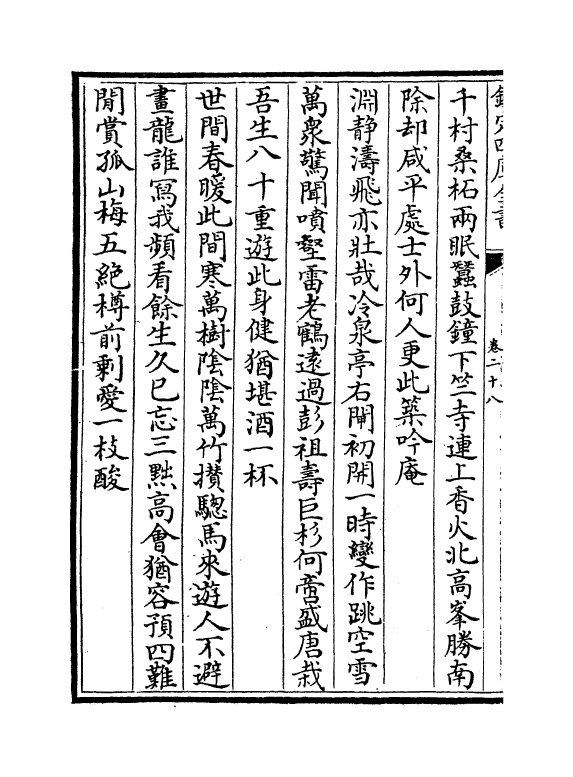 欽定四庫全書
卷二十八
千村桑柘兩眠蠶鼓鐘下竺寺連上香火北高峯勝南
除却咸平處士外何人更此築吟庵
淵静濤飛亦壯哉冷泉亭右閘初開一時變作跳空雪
萬衆驚聞噴壑雷老鶴遠過彭祖壽巨杉何啻盛唐栽
吾生八十重遊此身健猶堪酒一杯
世間春暖此間寒萬樹陰陰萬竹攅驄馬來遊人不避
畫龍誰寫我頻看餘生久已忘三㸃高會猶容預四難
閒賞孤山梅五絶樽前剰愛一枝酸